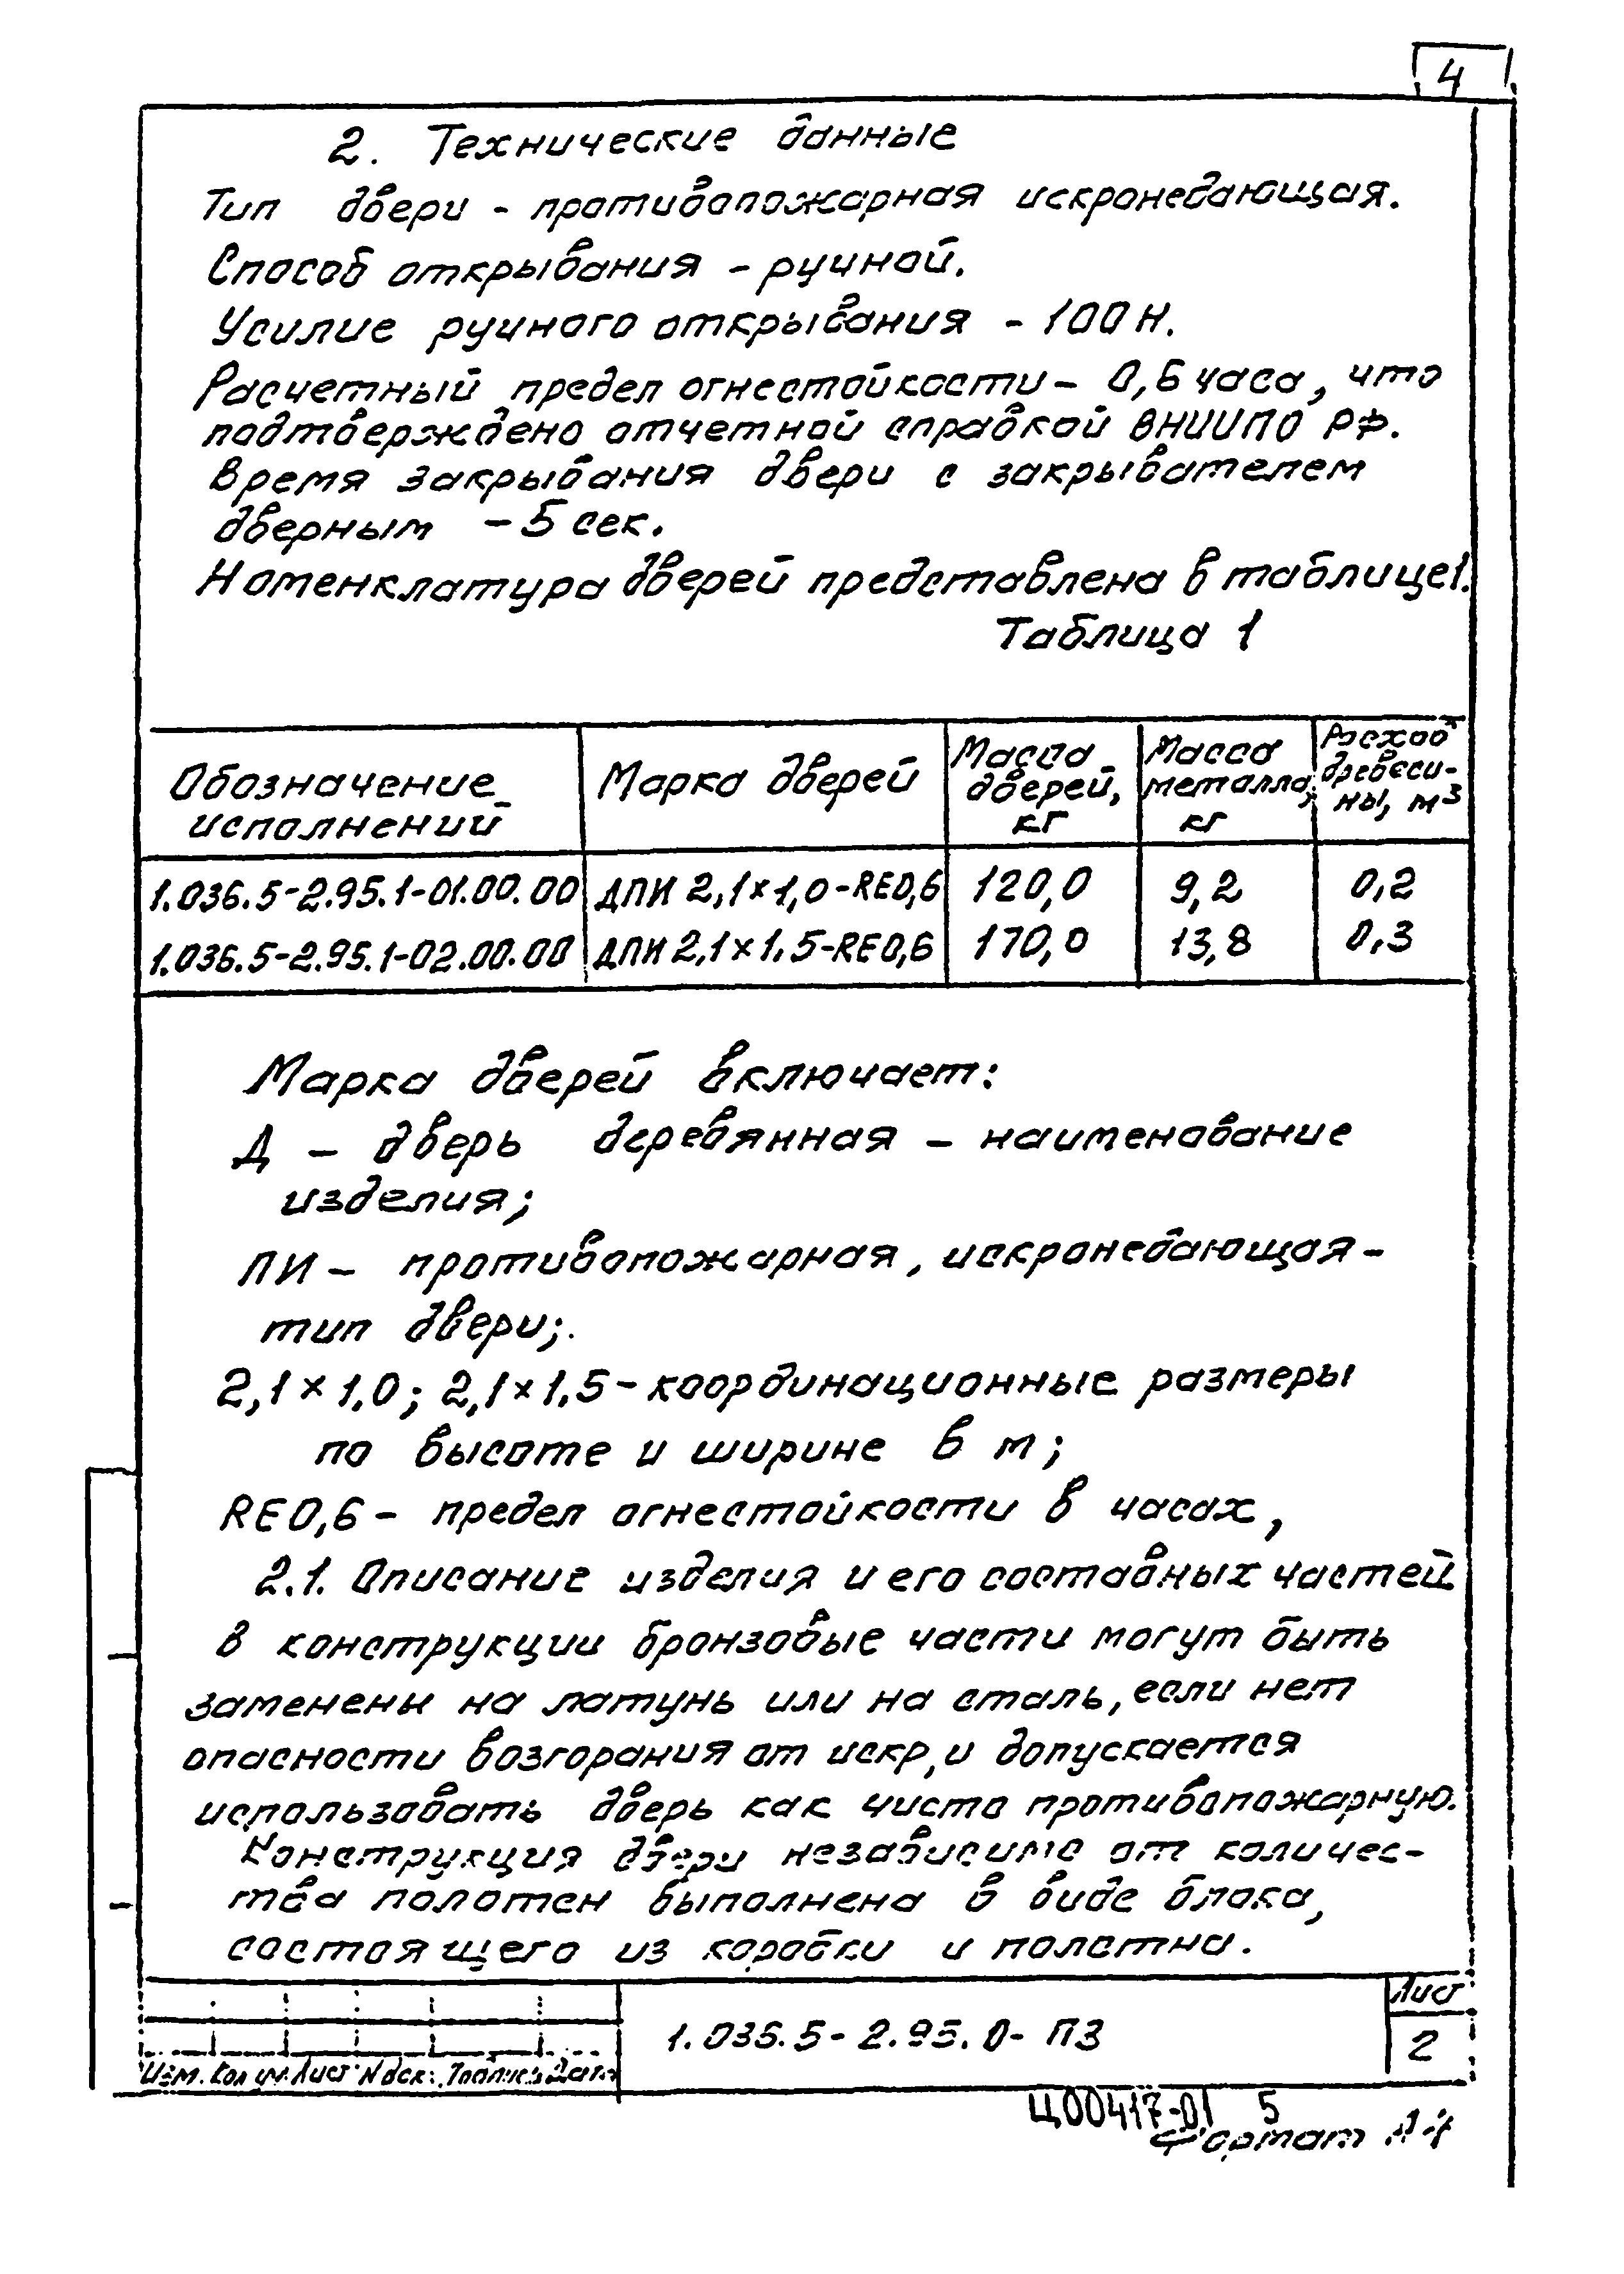 4
2. Технические данные
Тип двери - противопожарная искронедающая.
Способ открывания - ручной.
Усилие ручного открывания - 100 Н.
Расчетный предел огнестойкости - 0,6 часа, что
подтверждено отчетной справкой ВНИИПО РФ.
Время закрывания двери с закрывателем
дверным - 5 сек.
Номенклатура дверей представлена в таблице 1.
Таблица 1
Обозначение исполнений | Марка дверей | Масса дверей, кг | Масса металла, кг | Расход древеси-ны, м³
1.036.5-2.95.1-01.00.00 | ДПИ 2,1×1,0-RE0,6 | 120,0 | 9,2 | 0,2
1.036.5-2.95.1-02.00.00 | ДПИ 2,1×1,5-RE0,6 | 170,0 | 13,8 | 0,3
Марка дверей включает:
Д - дверь деревянная - наименование
изделия;
ПИ - противопожарная, искронедающая -
тип двери;
2,1×1,0; 2,1×1,5 - координационные размеры
по высоте и ширине в м;
RE0,6 - предел огнестойкости в часах,
2.1. Описание изделия и его составных частей
В конструкции бронзовые части могут быть
заменены на латунь или на сталь, если нет
опасности возгорания от искр, и допускается
использовать дверь как чисто противопожарную.
Конструкция двери независимо от количес-
тва полотен выполнена в виде блока,
состоящего из коробки и полотна.
1.036.5-2.95.0-ПЗ
Лист
2
Изм. Кол уч. Лист №док. Подпись Дата
Ц00417-01 5
Формат А4